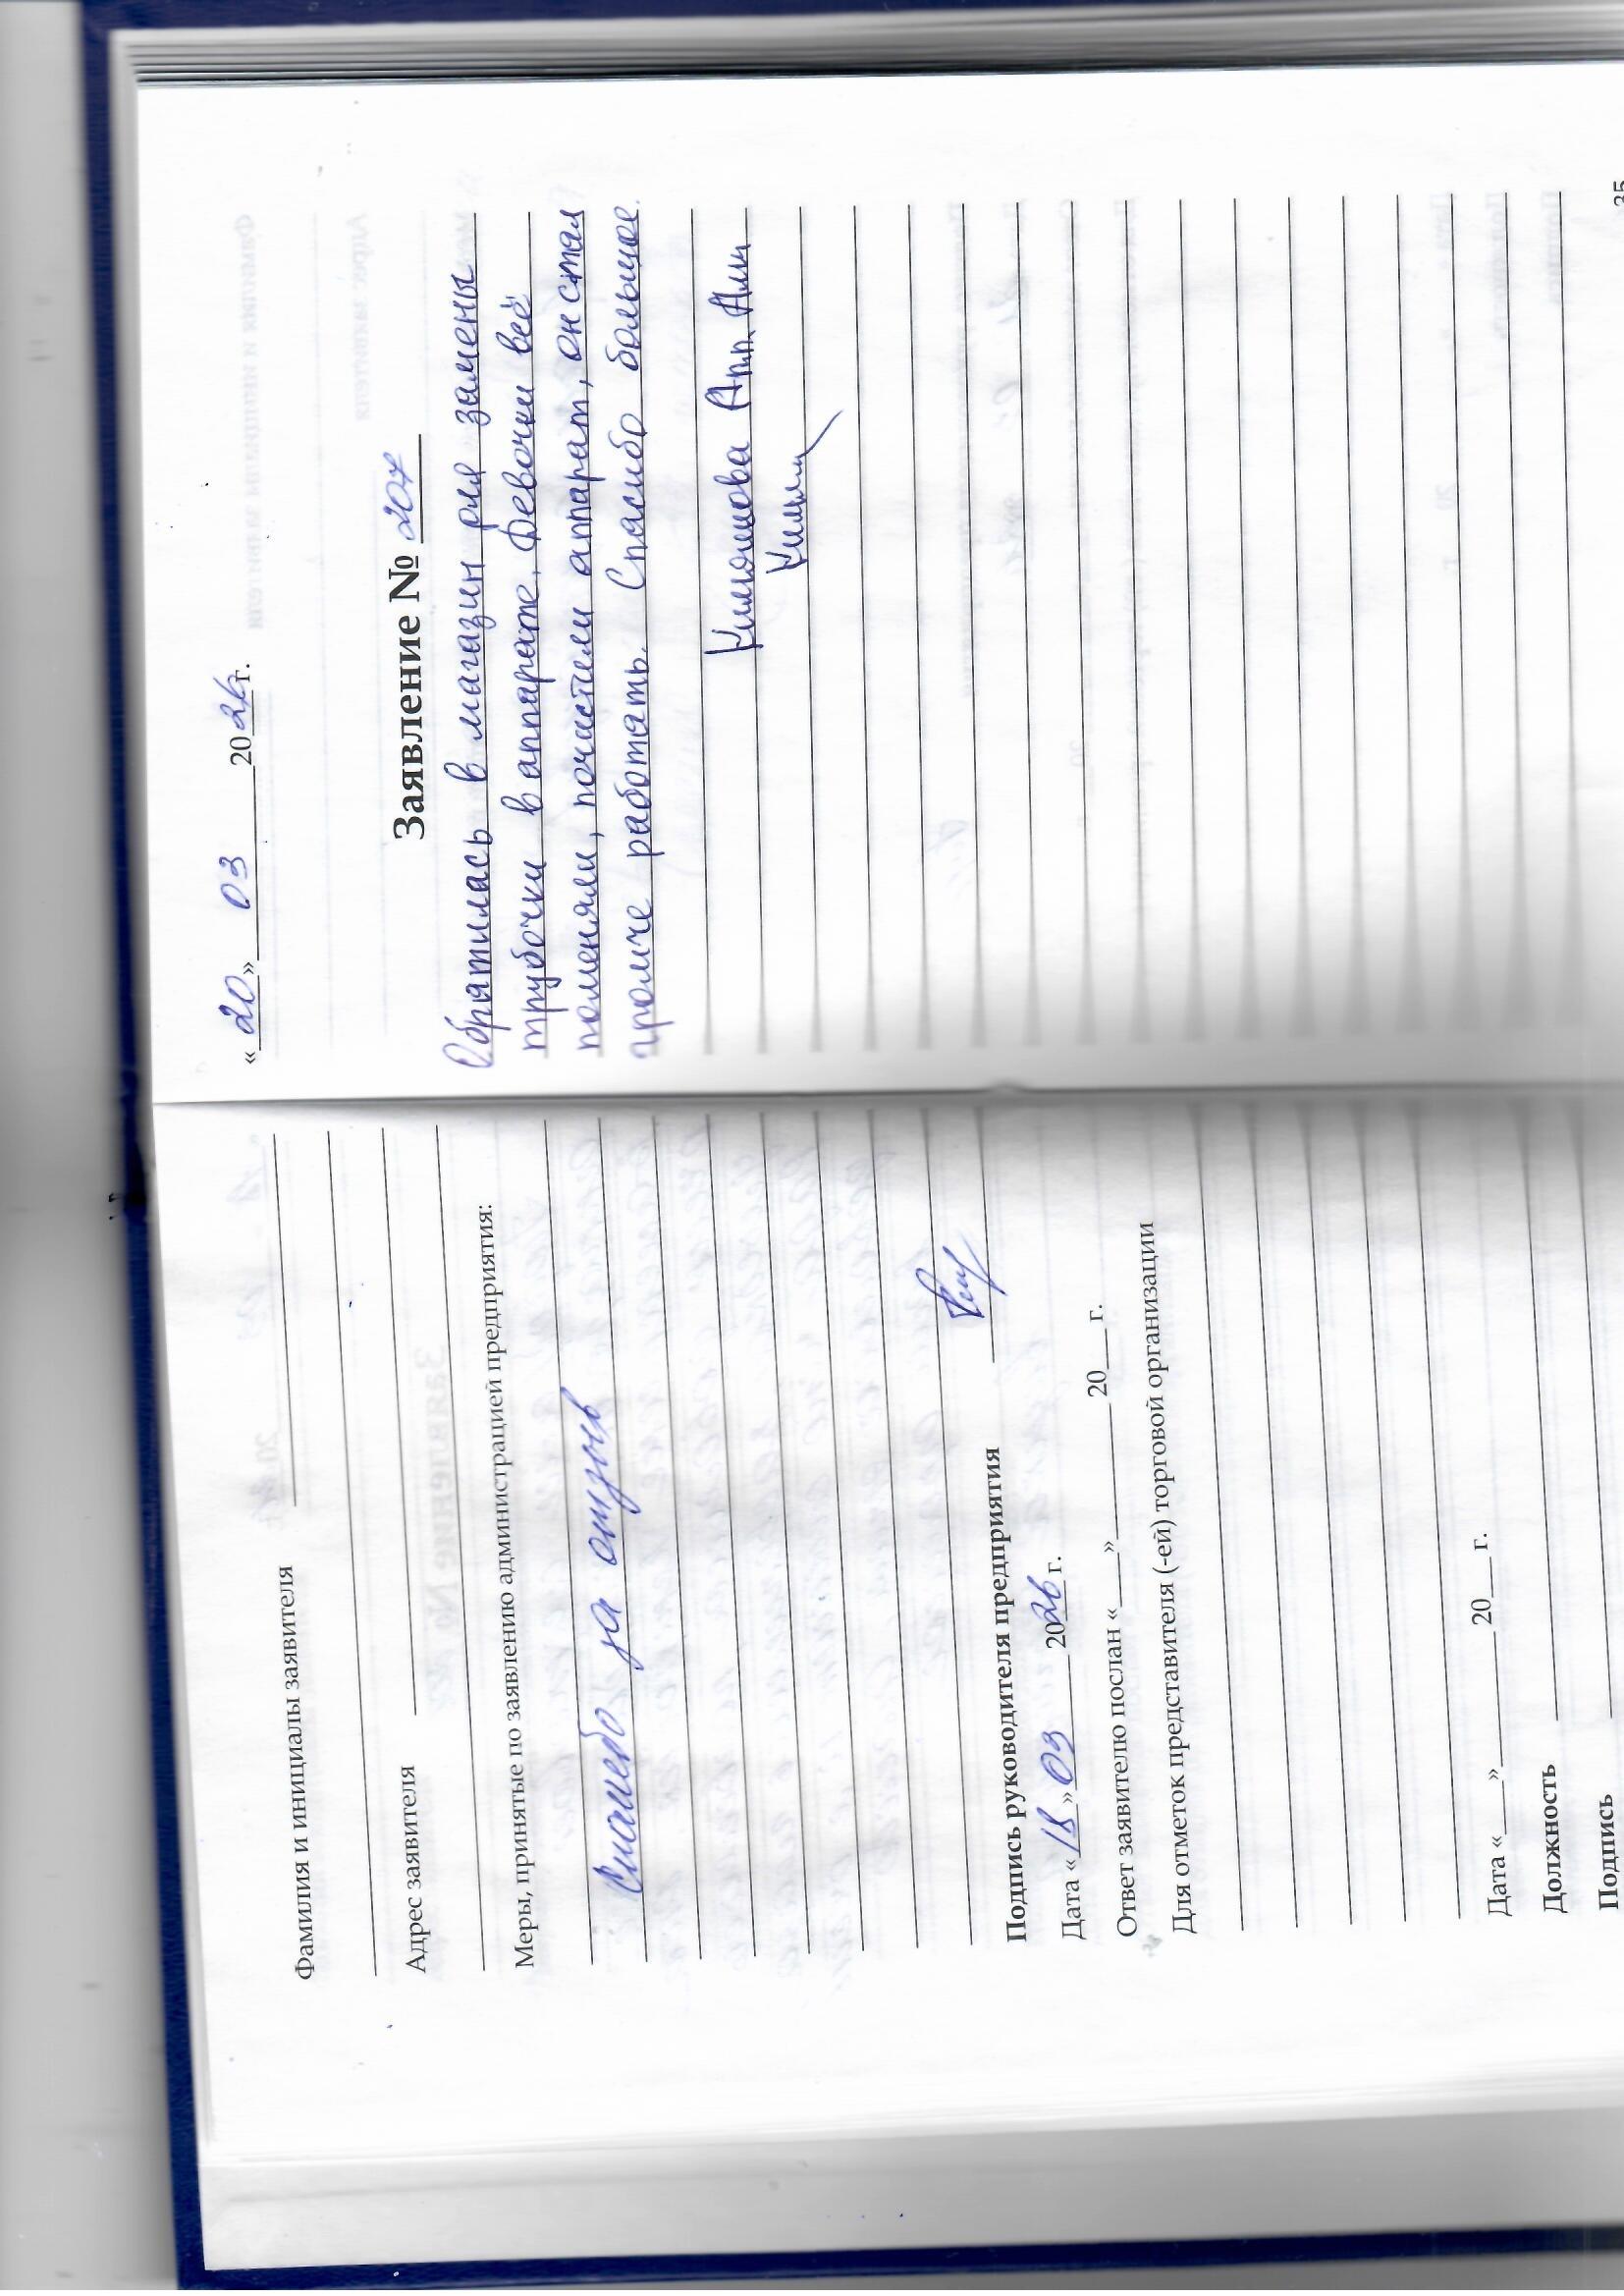 Фамилия и инициалы заявителя
Адрес заявителя
Меры, принятые по заявлению администрацией предприятия:
Спасибо за отзыв
Подпись руководителя предприятия
Дата «18» 03 2026 г.
Ответ заявителю послан «___» 20__ г.
Для отметок представителя (-ей) торговой организации
Дата «___» 20__ г.
Должность
Подпись
«20» 03 2026 г.
Заявление № 207
Обратилась в магазин для замены
трубочки в аппарате. Девочки всё
поменяли, почистели аппарат, он стал
громче работать. Спасибо большое.
35